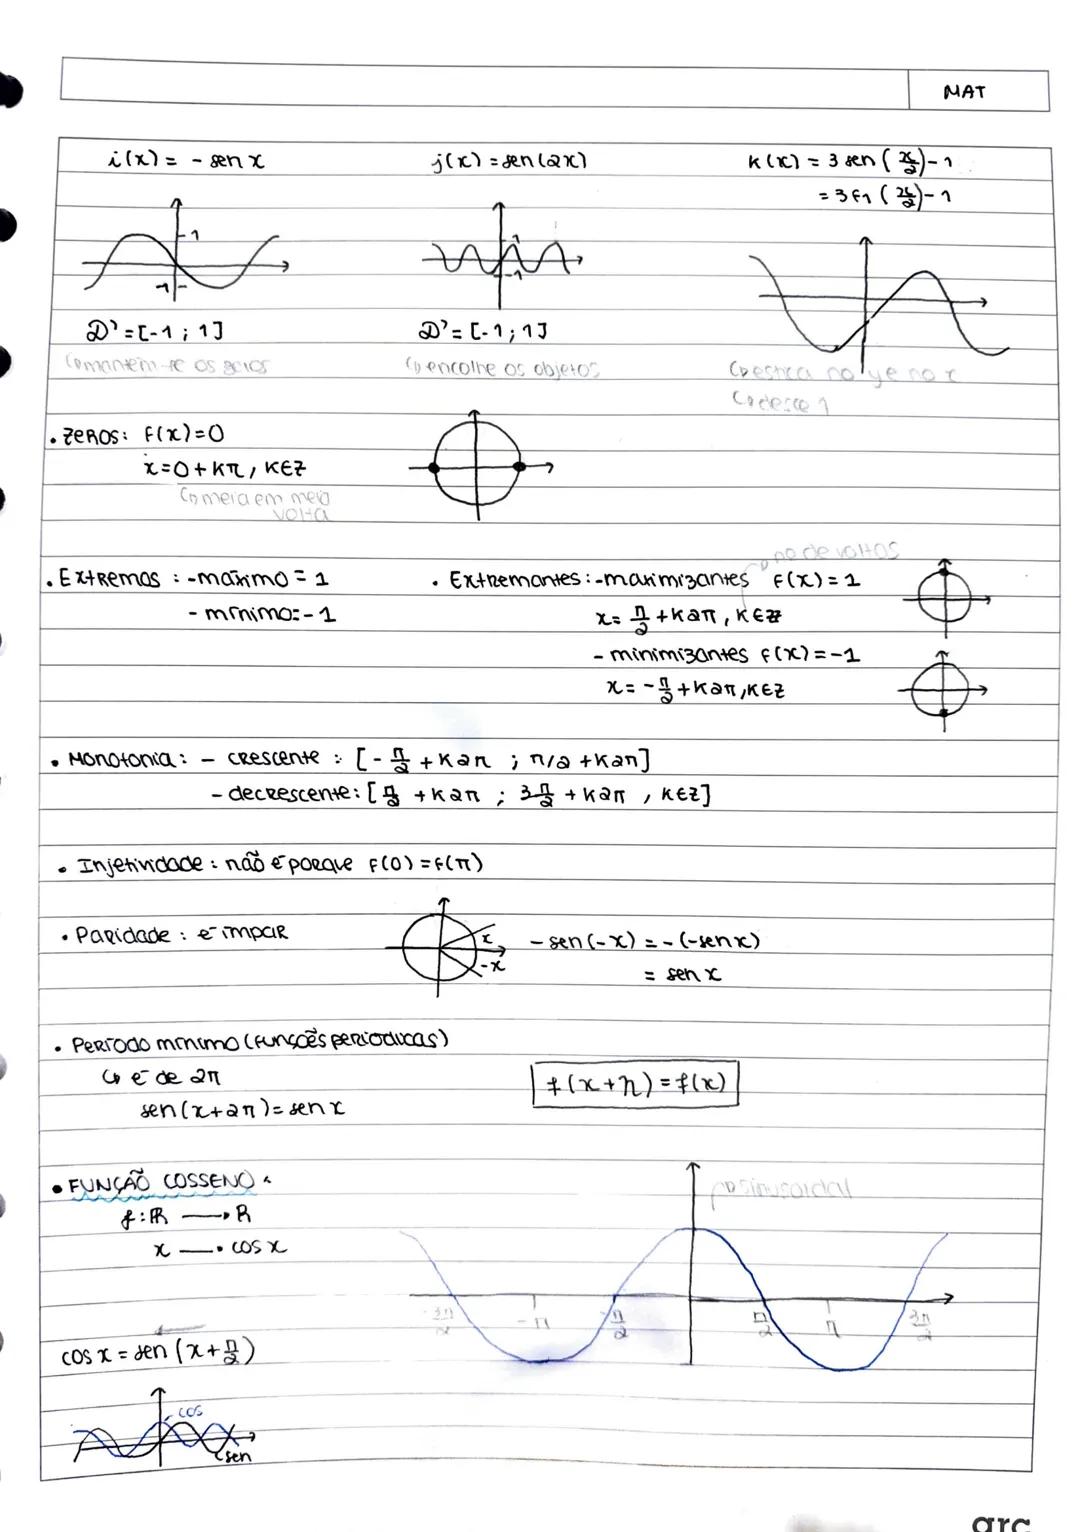 MAT
i(x) = - sen x
j(x) = sen(2x)
k(x) = 3 sen (x/2) - 1
= 3f1 (x/2) - 1
1
-1
1
-1
D' = [-1 ; 1]
D' = [-1 ; 1]
↳ mantêm-se os zeros
↳ encolhe os objetos
↳ estica no y e no x
↳ desce 1
• ZEROS: f(x)=0
x=0+kπ, k∈Z
↳ meia em meia
volta
↳ nº de voltas
• Extremos : -máximo = 1
- mínimo: -1
• Extremantes: -maximizantes f(x) = 1
x= π/2 + k2π, k∈Z
- minimizantes f(x) = -1
x = -π/2 + k2π, k∈Z
• Monotonia: - crescente : [-π/2 + k2π ; π/2 + k2π]
- decrescente: [π/2 + k2π ; 3π/2 + k2π , k∈Z]
• Injetividade : não é porque f(0) = f(π)
• Paridade : é ímpar
x
-x
- sen(-x) = - (-sen x)
= sen x
• Período mínimo (funções periódicas)
↳ é de 2π
f(x+π) = f(x)
sen(x+2π) = sen x
• FUNÇÃO COSSENO
↳ sinusoidal
f: R → R
x → cos x
-3π/2
-π
-π/2
π/2
π
3π/2
cos x = sen (x + π/2)
cos
sen
arc